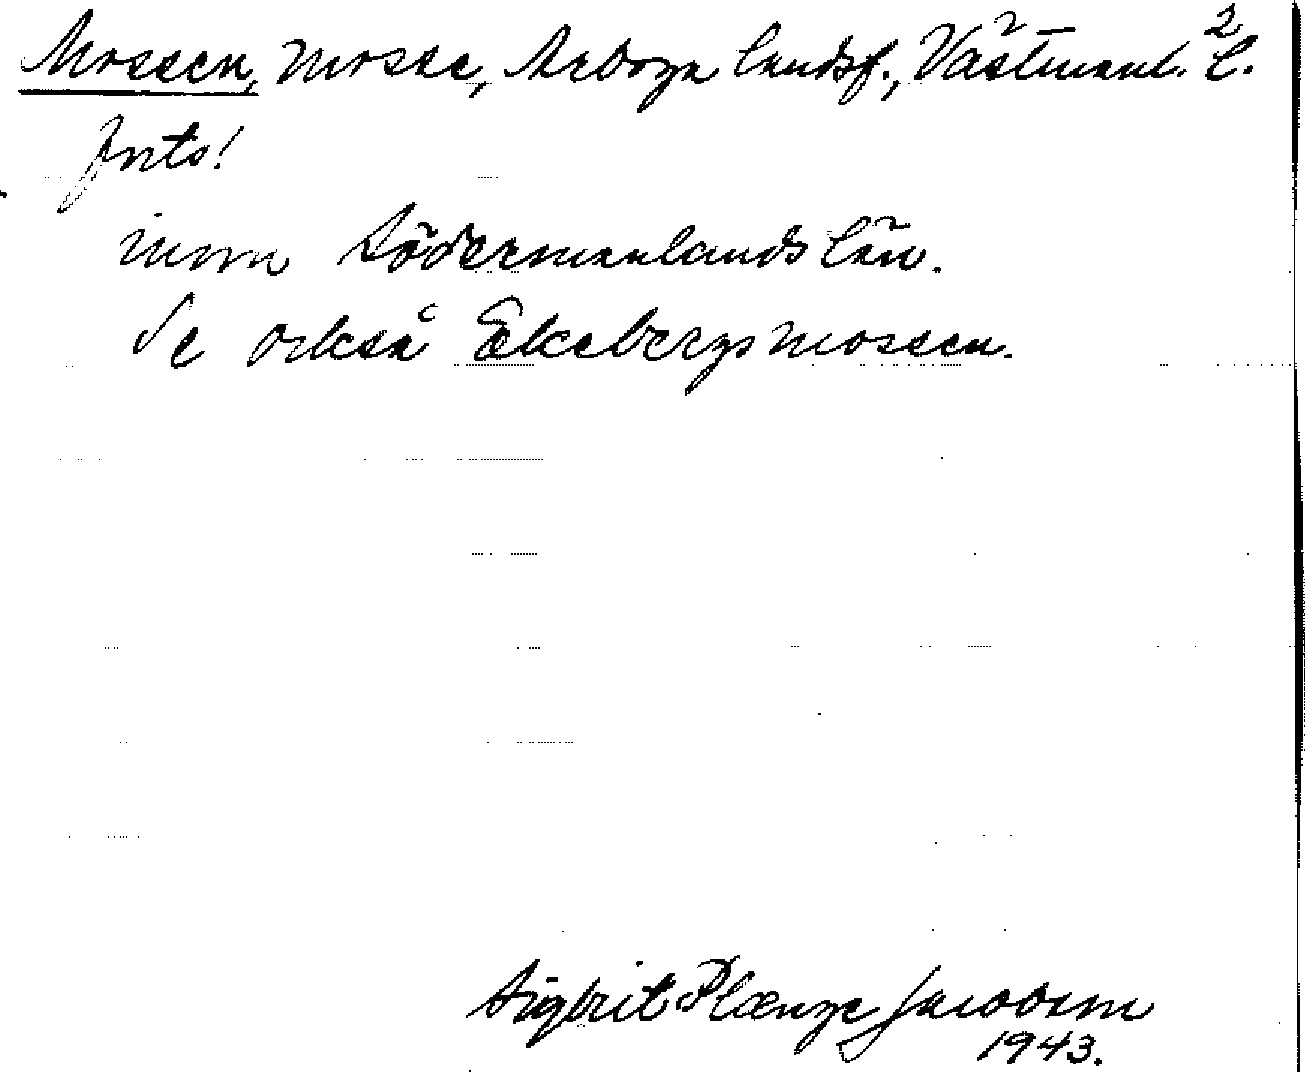 Mossen, mosse, Arboga landsf., Västmanl. l.
Forts!
inom Södermanlands län.
Se också Ekebergsmossen.
Sigbrit Plænge Jacobson
1943.